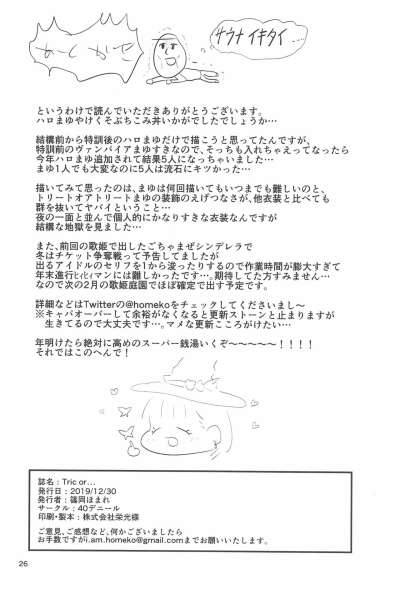 サウナイキタイ…
というわけで読んでいただきありがとうございます。
ハロまゆやけくそぶちこみ丼いかがでしたでしょうか…
結構前から特訓後のハロまゆだけで描こうと思ってたんですが、
特訓前のヴァンパイアまゆすきなので、そっちも入れちゃえってなったら
今年ハロまゆ追加されて結果5人になっちゃいました…
まゆ1人でも大変なのに5人は流石にキツかった…
描いてみて思ったのは、まゆは何回描いてもいつまでも難しいのと、
トリートオアトリートまゆの装飾のえげつなさが、他衣装と比べても
群を抜いてヤバイということ…
夜の一面と並んで個人的にかなりすきな衣装なんですが
結構な地獄を見ました…
また、前回の歌姫で出したごちゃまぜシンデレラで
冬はチケット争奪戦って予告してましたが
出るアイドルのセリフを1から浚ったりするので作業時間が膨大すぎて
年末進行ヒィヒィマンには難しかったです…。期待してた方すみません…
なので次の2月の歌姫庭園でほぼ確定で出す予定です。
詳細などはTwitterの@homekoをチェックしてくださいまし～
※キャパオーバーして余裕がなくなると更新ストーンと止まりますが
生きてるので大丈夫です…。マメな更新こころがけたい…
年明けたら絶対に高めのスーパー銭湯いくぞ～～～～～！！！！
それではこのへんで！
誌名：Tric or…
発行日：2019/12/30
発行者：篠岡ほまれ
サークル：40デニール
印刷・製本：株式会社栄光様
ご意見、ご感想など、何かございましたら
お手数ですがi.am.homeko@gmail.comまでお願いいたします。
26